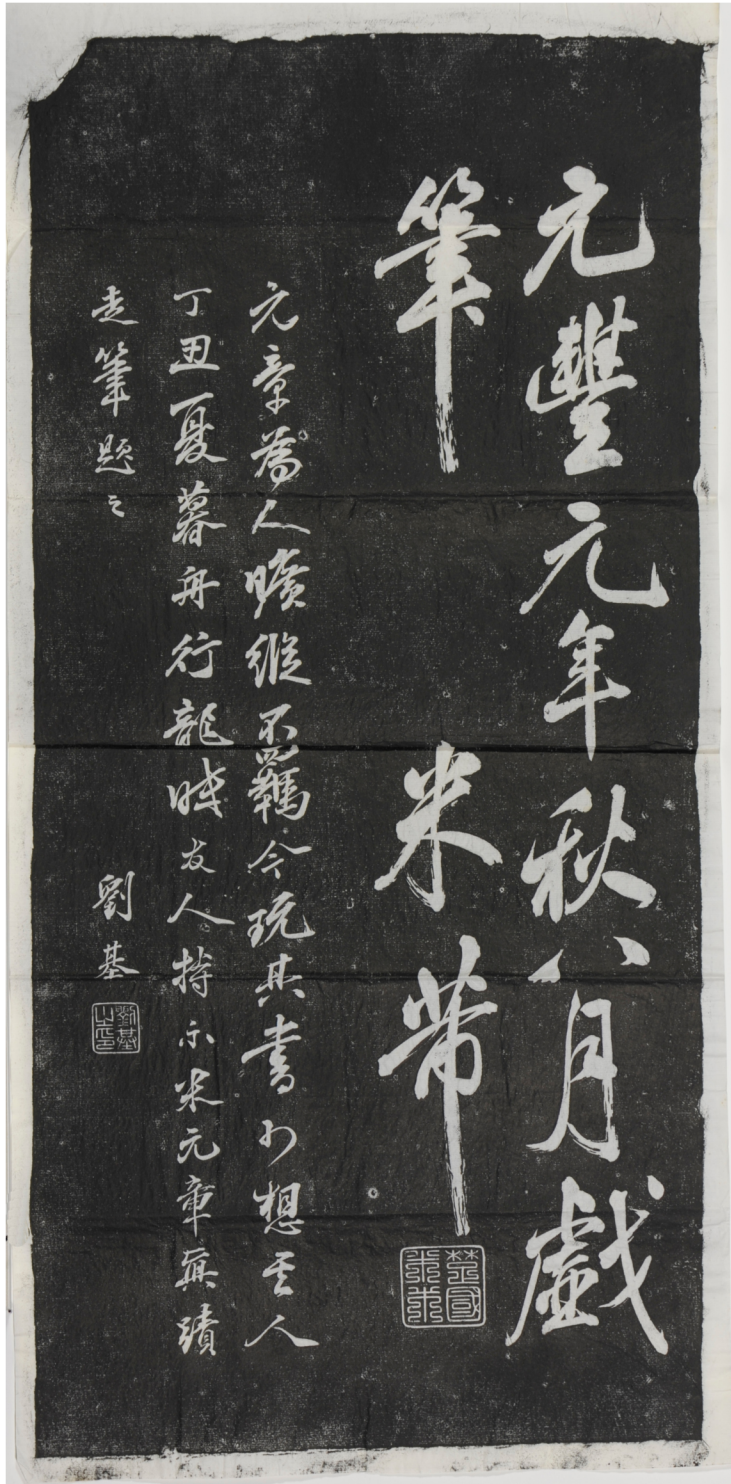 元豐元年秋八月戲
筆 米芾
楚國米芾
元章為人曠縱不羈今玩其書可想其人
丁丑夏暮舟行龍 友人持示米元章真蹟
走筆題之 劉基
劉基之印